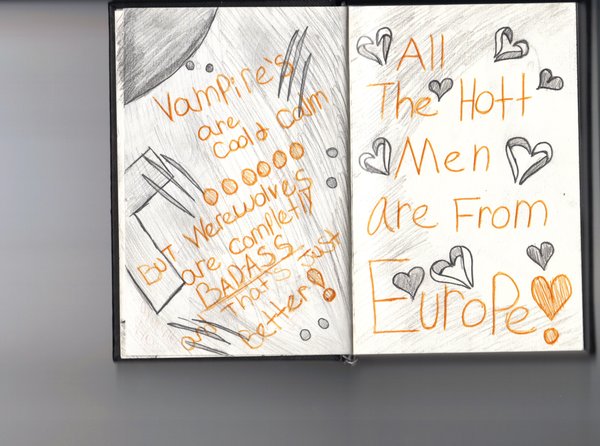 Vampire's
are
Cool & Calm
BUT Werewolves
are completly
BADASS
and That's Just
better!
All
The Hott
Men
are From
Europe!